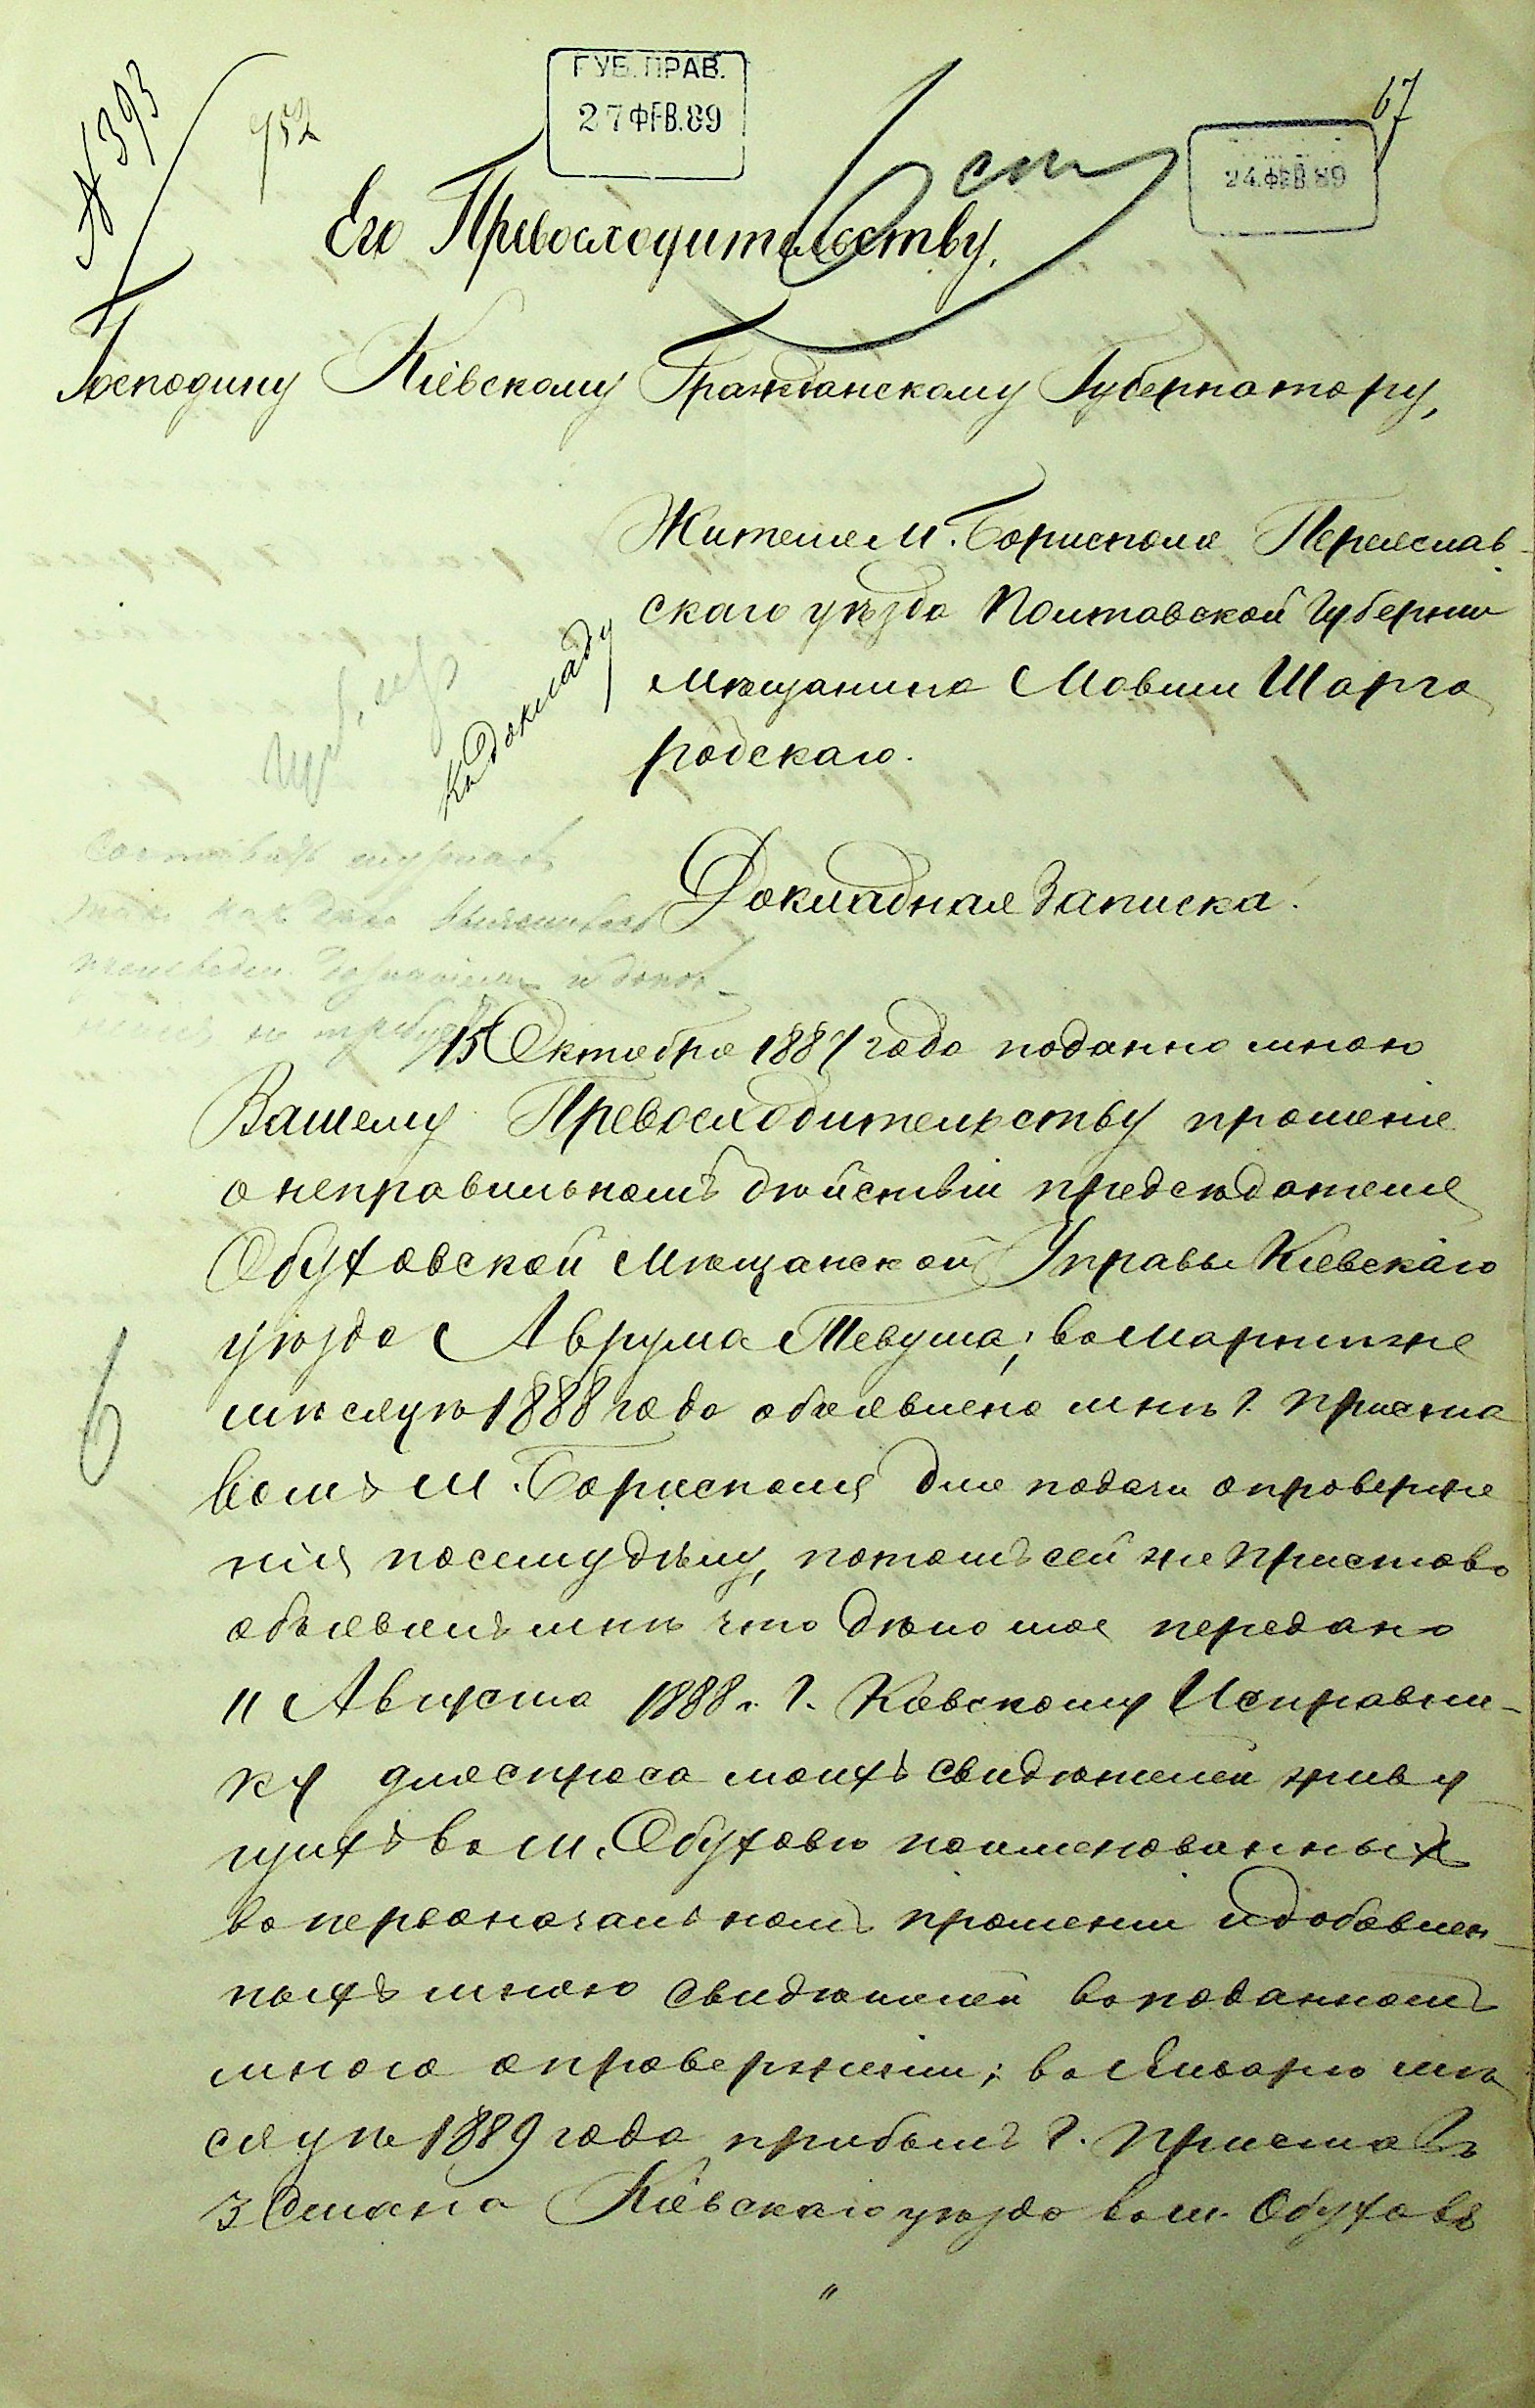 № 393
952
ГУБ. ПРАВ.
27 ФЕВ. 89
67
24 ФЕВ. 89
Его Превосходительству,
Господину Кіевскому Гражданскому Губернатору,
Жителя м. Борисполя Переяслав-
скаго уѣзда Полтавской Губерніи
мѣщанина Мовши Шарго
родскаго.
Къ докладу
Докладная Записка.
15 Октября 1887 года поданно мною
Вашему Превосходительству прошеніе
о неправильномъ дѣйствіи предсѣдателя
Обуховской Мѣщанской Управы Кіевскаго
уѣзда Аврума Тевуша; во Мартиже
мѣсяцѣ 1888 года объявлено мнѣ г. Приста
вомъ м. Борисполя для подачи опроверже
нія посему дѣлу, потомъ сей же Приставъ
объявилъ мнѣ что дѣло мое передано
11 Августа 1888 г. Г. Кіевскому Исправни-
ку для спроса моихъ свидѣтелей живу-
щихъ во м. Обуховѣ поименованныхъ
во первоначальномъ прошеніи и добавлен-
ныхъ мною свидѣтелей во поданномъ
мною опроверженіи; во Январѣ мѣ
сяцѣ 1889 года прибылъ г. Приставъ
3 Стана Кіевскаго уѣзда во м. Обуховъ
6